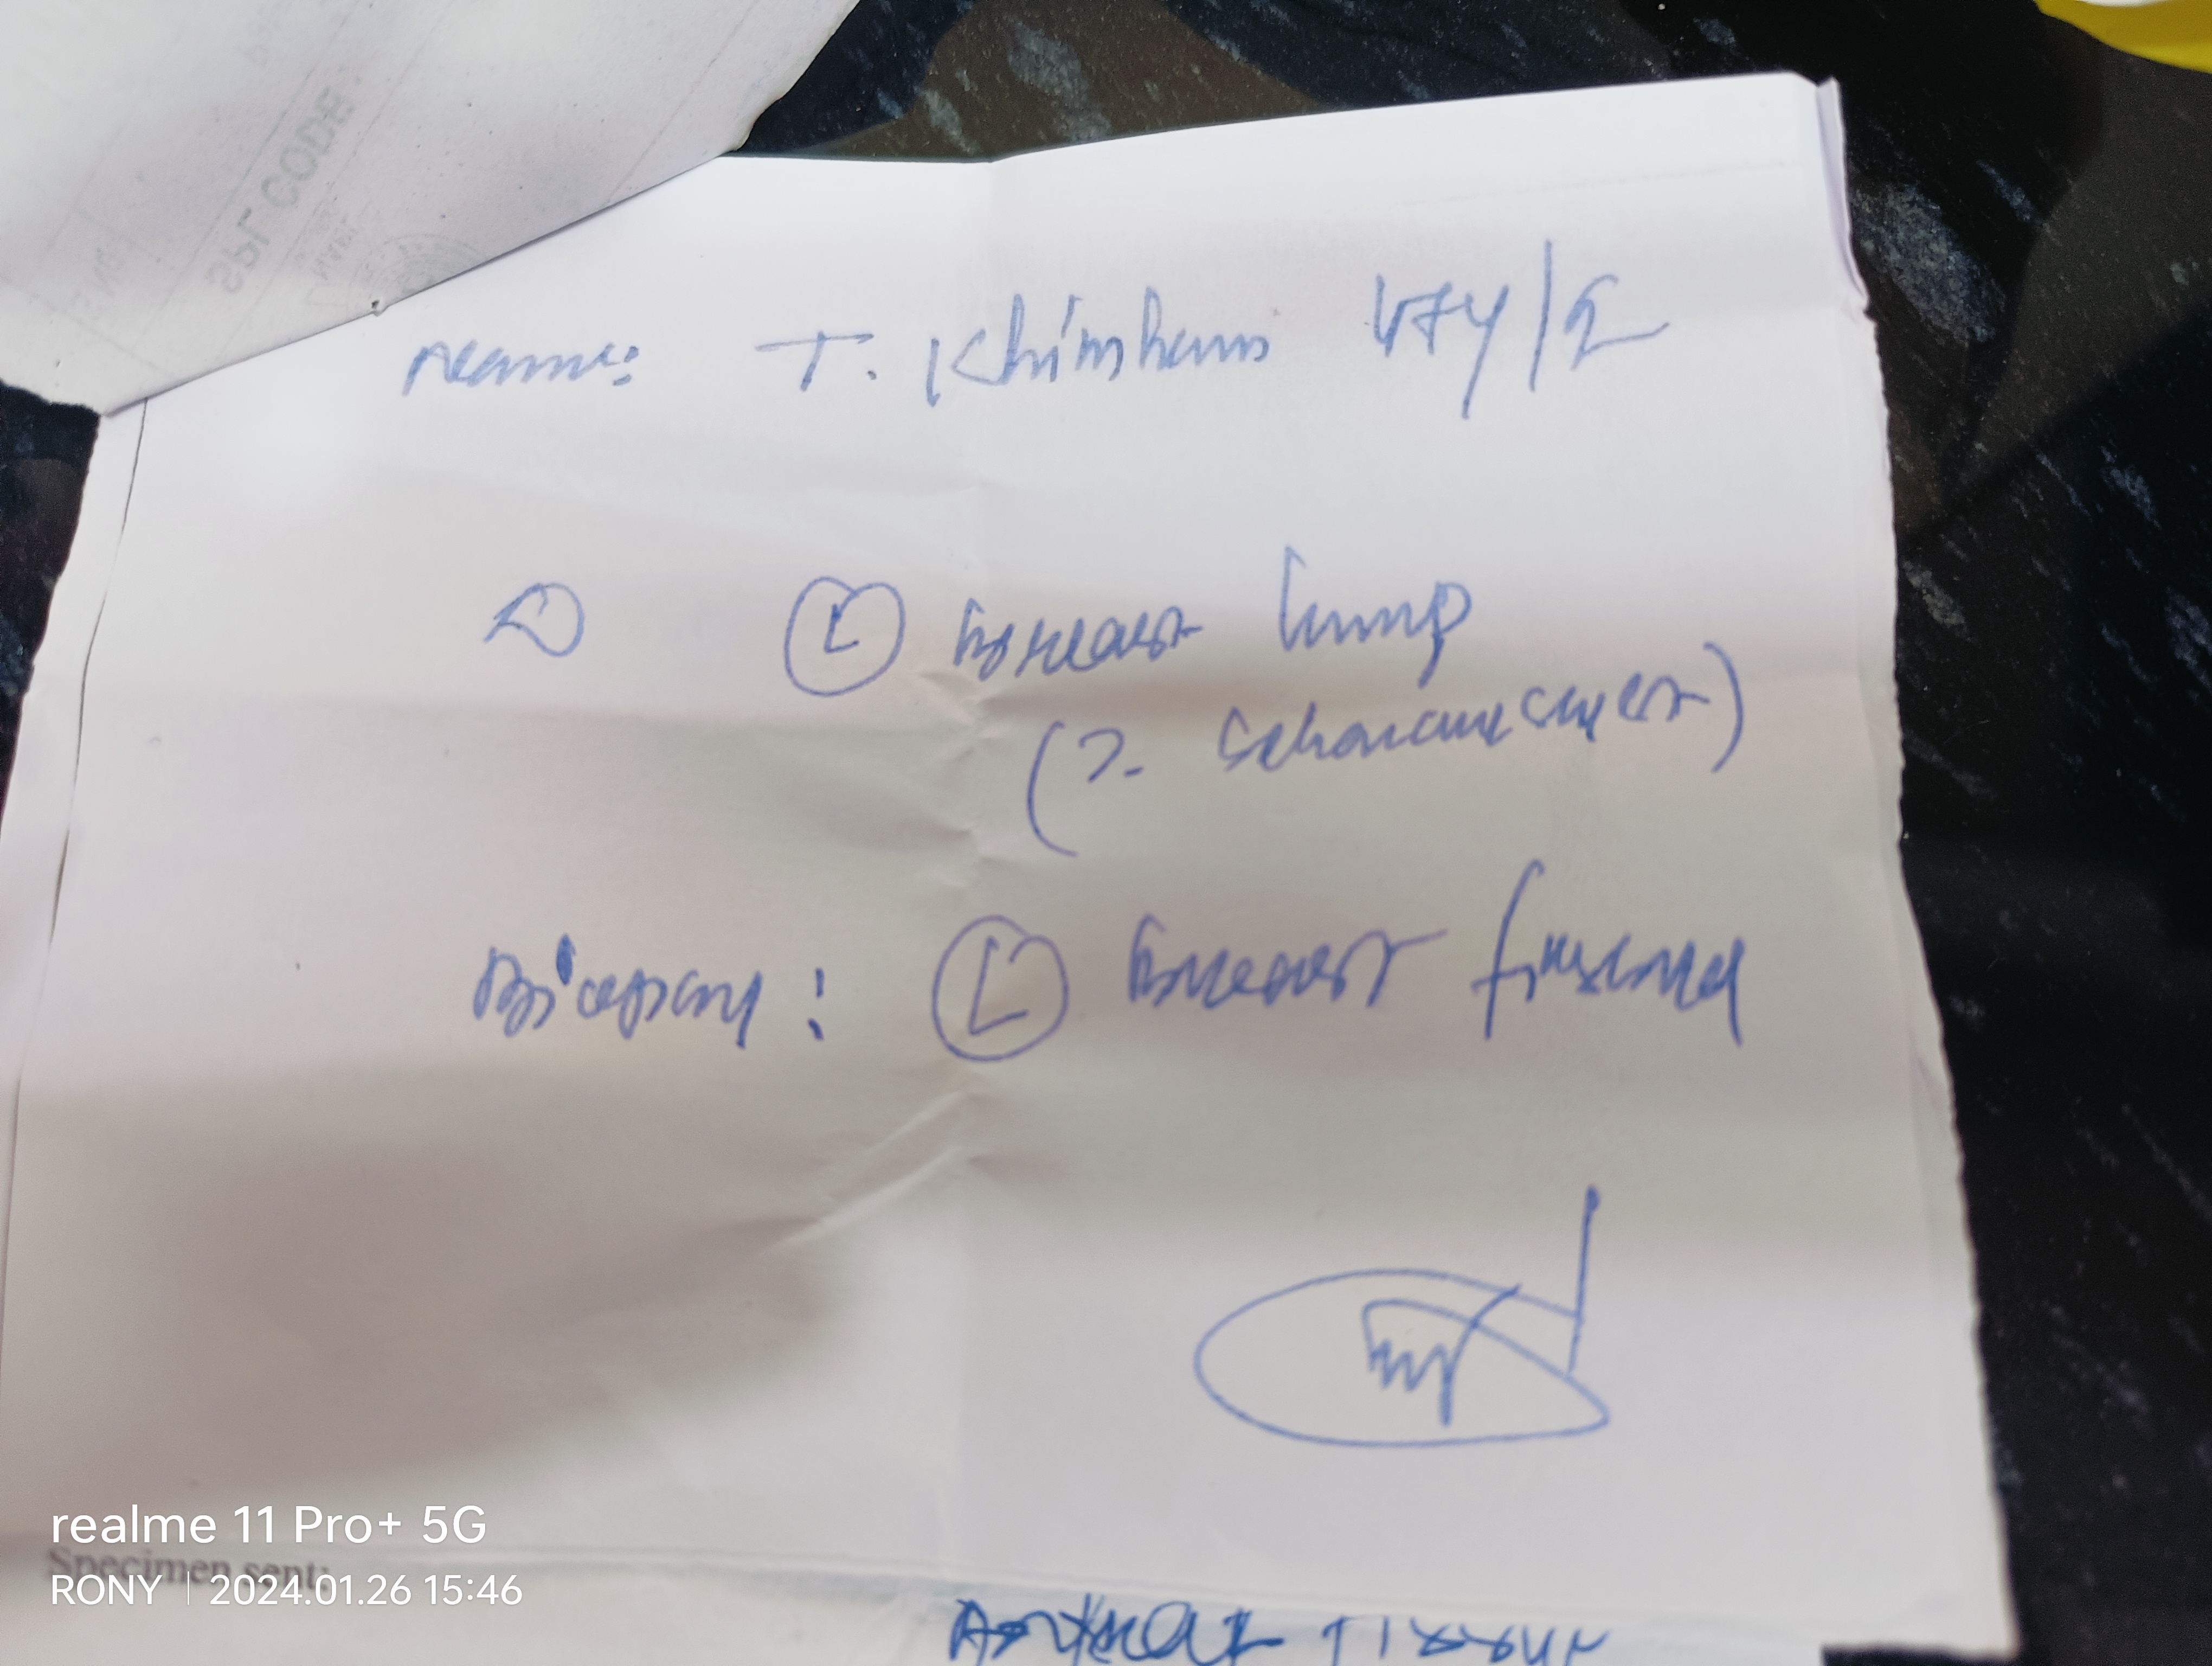 SPL CODE
Name: T. Khimhum 47y/♀
Ⓛ Breast lump
(?. Sebaceous cyst)
Biopsy: Ⓛ Breast
realme 11 Pro+ 5G
Specimen sent:
RONY | 2024.01.26 15:46
Tissue